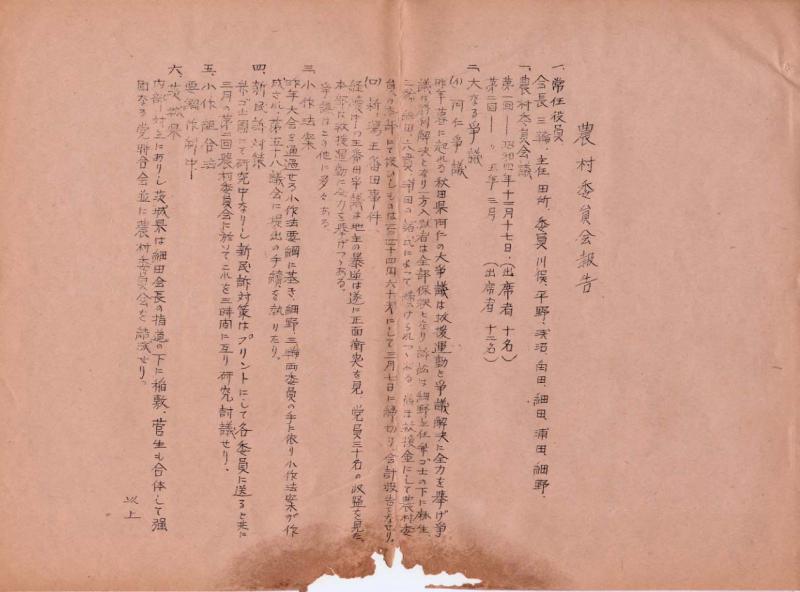 農村委員会報告
一、常任役員
会長 三輪、主任 田所、委員 川俣、平野、浅沼、角田、細田、浦田、細野、
一、農村委員会議
第一回 — 昭和四年十二月十七日、(出席者 十名)
第二回 — 〃 五年 三月 (出席者 十二名)
二、大なる争議
(イ) 阿仁争議
昨年春に起れる秋田県阿仁の大争議は救援運動と争議解決に全力を挙げ争
議は有利解決となり一方入獄者は全部保釈となり訴訟は細野主任弁ゴ士の下に麻生、
三輪、細田、六 浦田の諸氏によつて続けられつゝある、尚ほ救援金にして農村委
員の本部にて扱ひしものは百三十四円六十 にして三月七日に締切り、会計報告となせり、
(ロ) 新潟五番田事件、
経 中の五番田争議は地主の暴逆は遂に正面衝突を見、党員三十名の収監を見た、
本部は救援運動に全力を挙げつゝある。
争議はこの他に多々ある
三、小作法案
昨年大会を通過せる小作法要綱に基き、細野、三輪両委員の手に依り小作法案が作
成され、第五十八議会に提出の手続を執りたり、
四、新民訴対策
弁ゴ士団にて研究中なりし新民訴対策はプリントにして各委員に送ると共に
三月の第二回農村委員会に於いてこれを三時間に亙り研究討議せり、
五、小作組合法
要綱作制中
六、茨城県
内部対立にありし茨城県は細田会長の指導の下に稲敷、菅生も合体して強
固なる党 合会並に農村委員会を 成せり。
以上